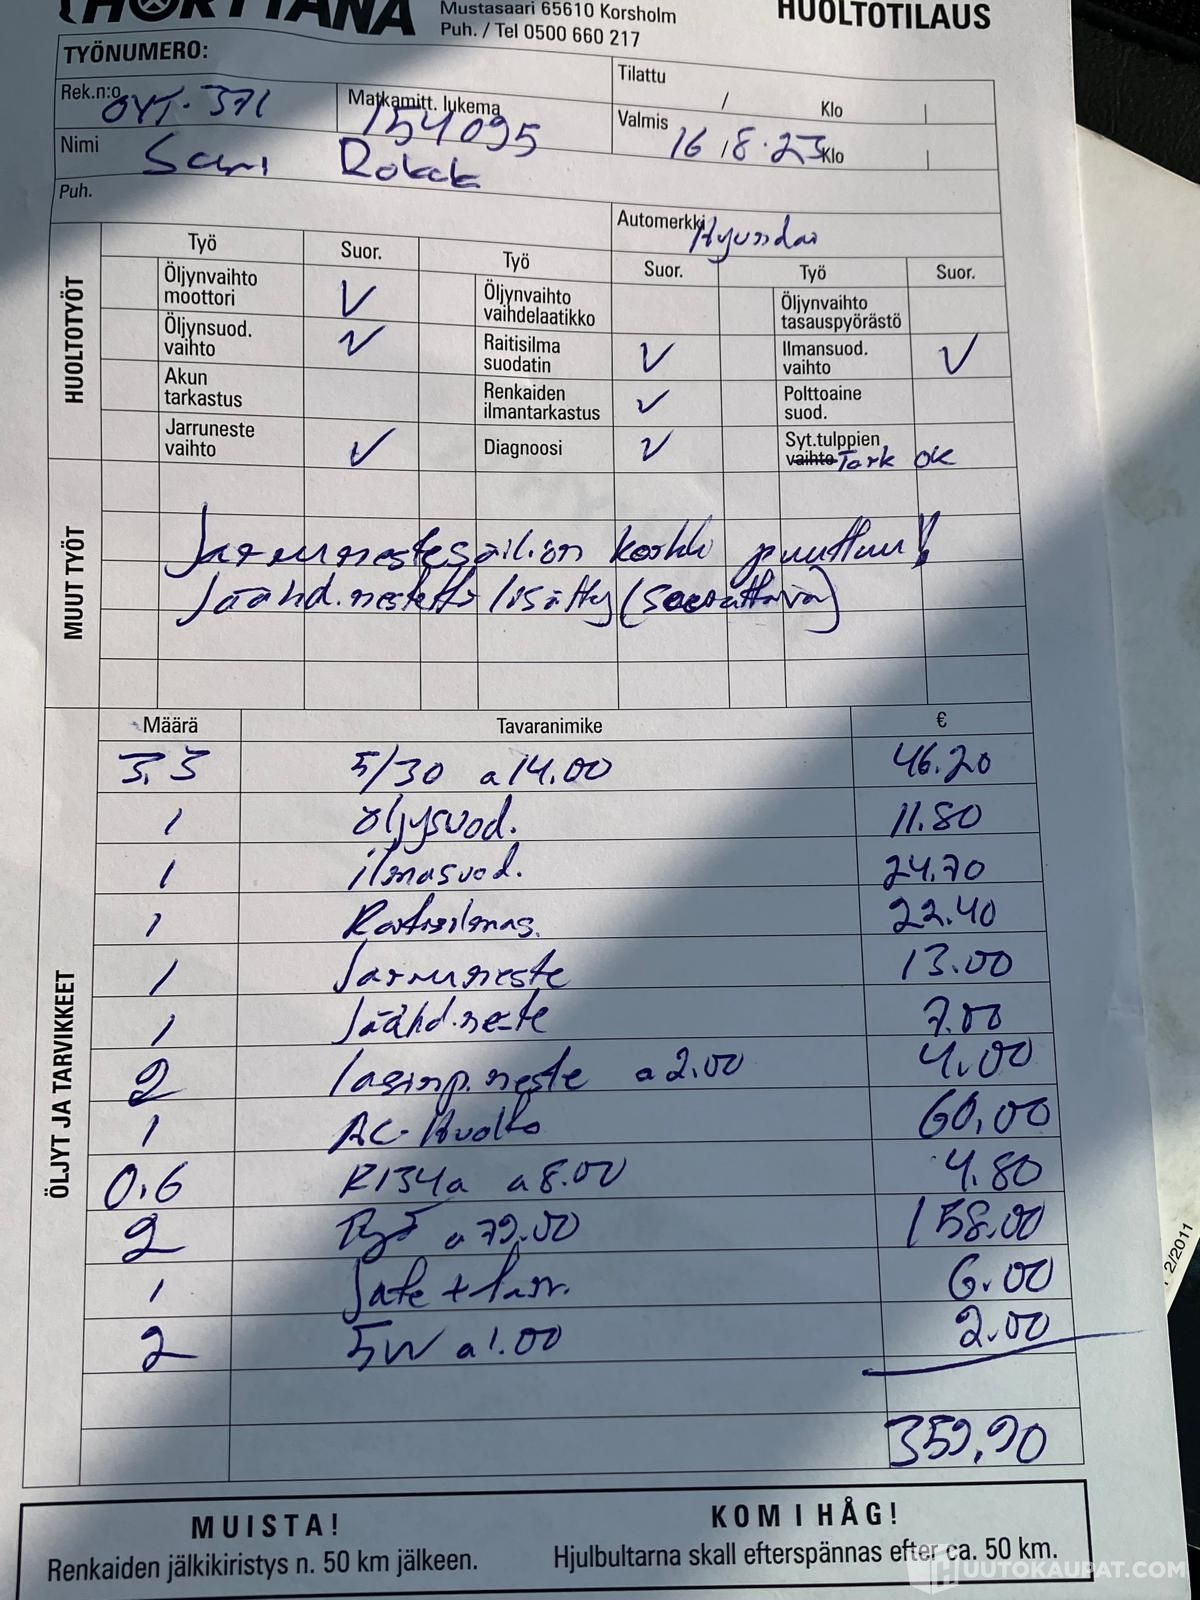 Mustasaari 65610 Korsholm
Puh. / Tel 0500 660 217
HUOLTOTILAUS
TYÖNUMERO:
Tilattu / Klo
Rek.n:o OYT-371
Matkamitt. lukema 154095
Valmis 16.8.23 Klo
Nimi Sami
Puh.
Automerkki Hyundai
HUOLTOTYÖT
Työ Suor. Työ Suor. Työ Suor.
Öljynvaihto moottori V
Öljynvaihto vaihdelaatikko
Öljynvaihto tasauspyörästö
Öljynsuod. vaihto V
Raitisilma suodatin V
Ilmansuod. vaihto V
Akun tarkastus
Renkaiden ilmantarkastus V
Polttoaine suod.
Jarruneste vaihto V
Diagnoosi V
Syt.tulppien vaihto Tark OK
MUUT TYÖT
Jarrunestesäiliön korkki puuttuu!
Jäähd.nestettä lisätty (seurattava)
ÖLJYT JA TARVIKKEET
Määrä Tavaranimike €
3.3 5/30 a 14.00 46.20
1 öljysuod. 11.80
1 ilmasuod. 24.70
1 Raitisilmas. 22.40
1 Jarruneste 13.00
1 Jäähd.neste 7.00
2 lasinp.neste a 2.00 4.00
1 AC-Huolto 60.00
0.6 R134a a 8.00 4.80
2 Työ a 79.00 158.00
1 Jäte + tarv. 6.00
2 5W a 1.00 2.00
359,90
MUISTA!
Renkaiden jälkikiristys n. 50 km jälkeen.
KOM IHÅG!
Hjulbultarna skall efterspännas efter ca. 50 km.
2/2011
UUTOKAUPAT.COM